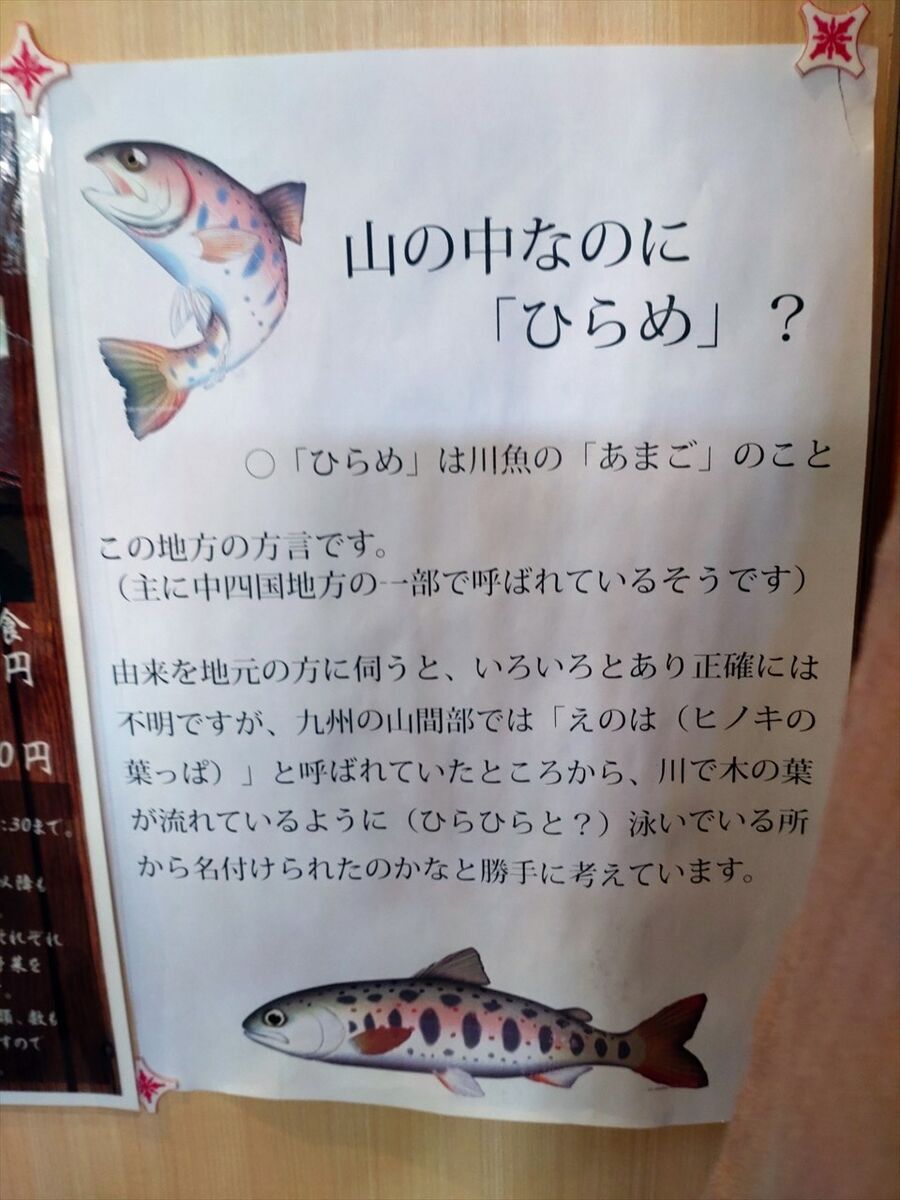 山の中なのに
「ひらめ」？
○「ひらめ」は川魚の「あまご」のこと
この地方の方言です。
（主に中四国地方の一部で呼ばれているそうです）
由来を地元の方に伺うと、いろいろとあり正確には
不明ですが、九州の山間部では「えのは（ヒノキの
葉っぱ）」と呼ばれていたところから、川で木の葉
が流れているように（ひらひらと？）泳いでいる所
から名付けられたのかなと勝手に考えています。
食
円
0円
:30まで。
以降も
それぞれ
すので